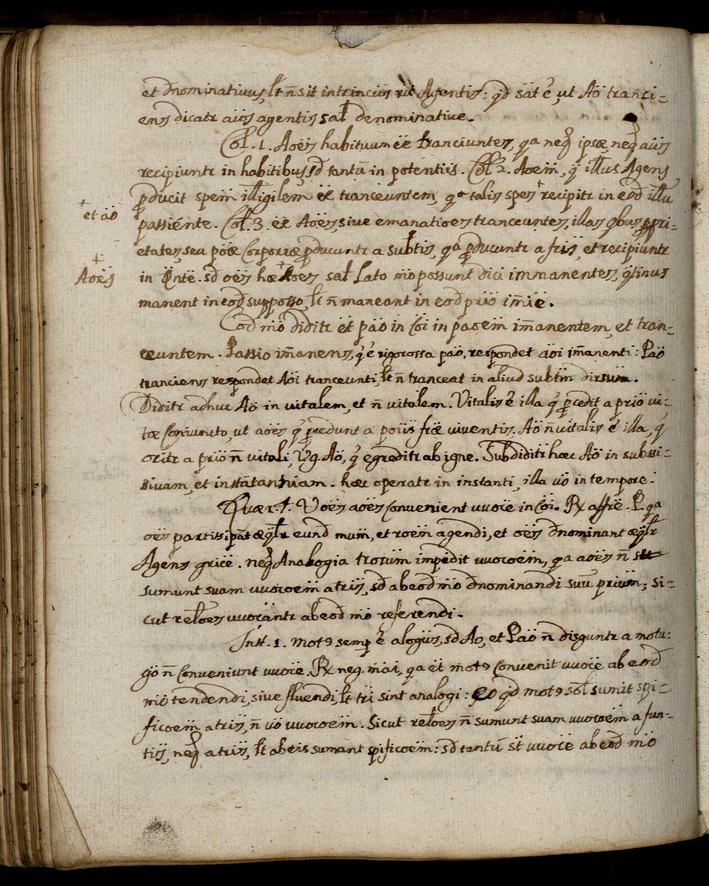 et dnominativus, lt n̄ sit intrincius rū Agentis: qd sāt ē, ut Aō tranci-
ens dicatr aiūs agentis sal denominative.
Col. 1. Aoēs habituum eē tranciuntes, qa neq ipsæ neq aiis
recipiuntr in habitibus, sd tantū in potentiis. Col 2. Aoēm, q illius Agens
pducit speīm illigilem eē tranceuntem, qa talis spes + recipitr in eod illu
+ et aō
passiente. Col. 3. eē Aoēs sive emanatioēs tranceuntes, illas qbus ppri-
etates, seu pōæ Corporiæ pducuntr a subtis, qa pducuntr a fris, et recipiuntr
+ Aoēs
in Qnte. sd oēs hæ + Aoēs sal Lato mō possunt dici immanentes, qtinus
manent in eod supposto, lt n̄ maneant in eod prio imīe.
Eod mō diditr et pāō in Coī in paoēm im̄anentem, et tran-
ceuntem. Passio im̄anens, q ē rigorossa pāō, respondet aōi im̄anenti: Pāō
tranciens respondet Aōi tranceunti, lt n̄ tranceat in aliud subtm̄ dirsum.
Diditr adhuc Aō in vitalem, et n̄ vitalem. Vitalis ē illa q pcedit a prio vi-
tæ Conjuncto, ut aoēs q predunt a poiis fræ viventis. Aō n̄ vitalis ē illa, q
oritr a prio n̄ vitali, Vg. Aō, q egreditr ab igne. Subdiditr hæc Aō in subssi-
sivam, et instatanniam. hæc operatr in instanti, illa vō in tempore.
Quær. 1. V oēs aoēs Convenient uvoce in Coī. Rx affrē. P. qa
oēs partissipāt æqlr eund mum, et roēm agendi, et oēs dnominant æqlr
Agens gricē. neq Analogia trorum impedit uvocoēm, qa aoēs n̄
sumunt suam uvocoēm a tris, sd ab eod mō dnominandi suū prium; si-
cut reloēs uvocantr ab eod mō referendi.
Inst. 1. mot9 semp ē alogus, sd Ao, et Pāō n̄ disguntr a motu:
gō n̄ Conveniunt uvocē. Rx neg. mai, qa et mot9 Convenit uvocē ab eod
mō tendendi, sive fluendi, lt tri sint analogi: eo qd mot9 sol sumit spi-
ficoēm a tris, n̄ vō uvocoēm. Sicut reloēs n̄ sumunt suam uvocoēm a fun-
tis, neq a tris, lt ab eis sumant spificoēm: sd tantū st uvocē ab eod mō